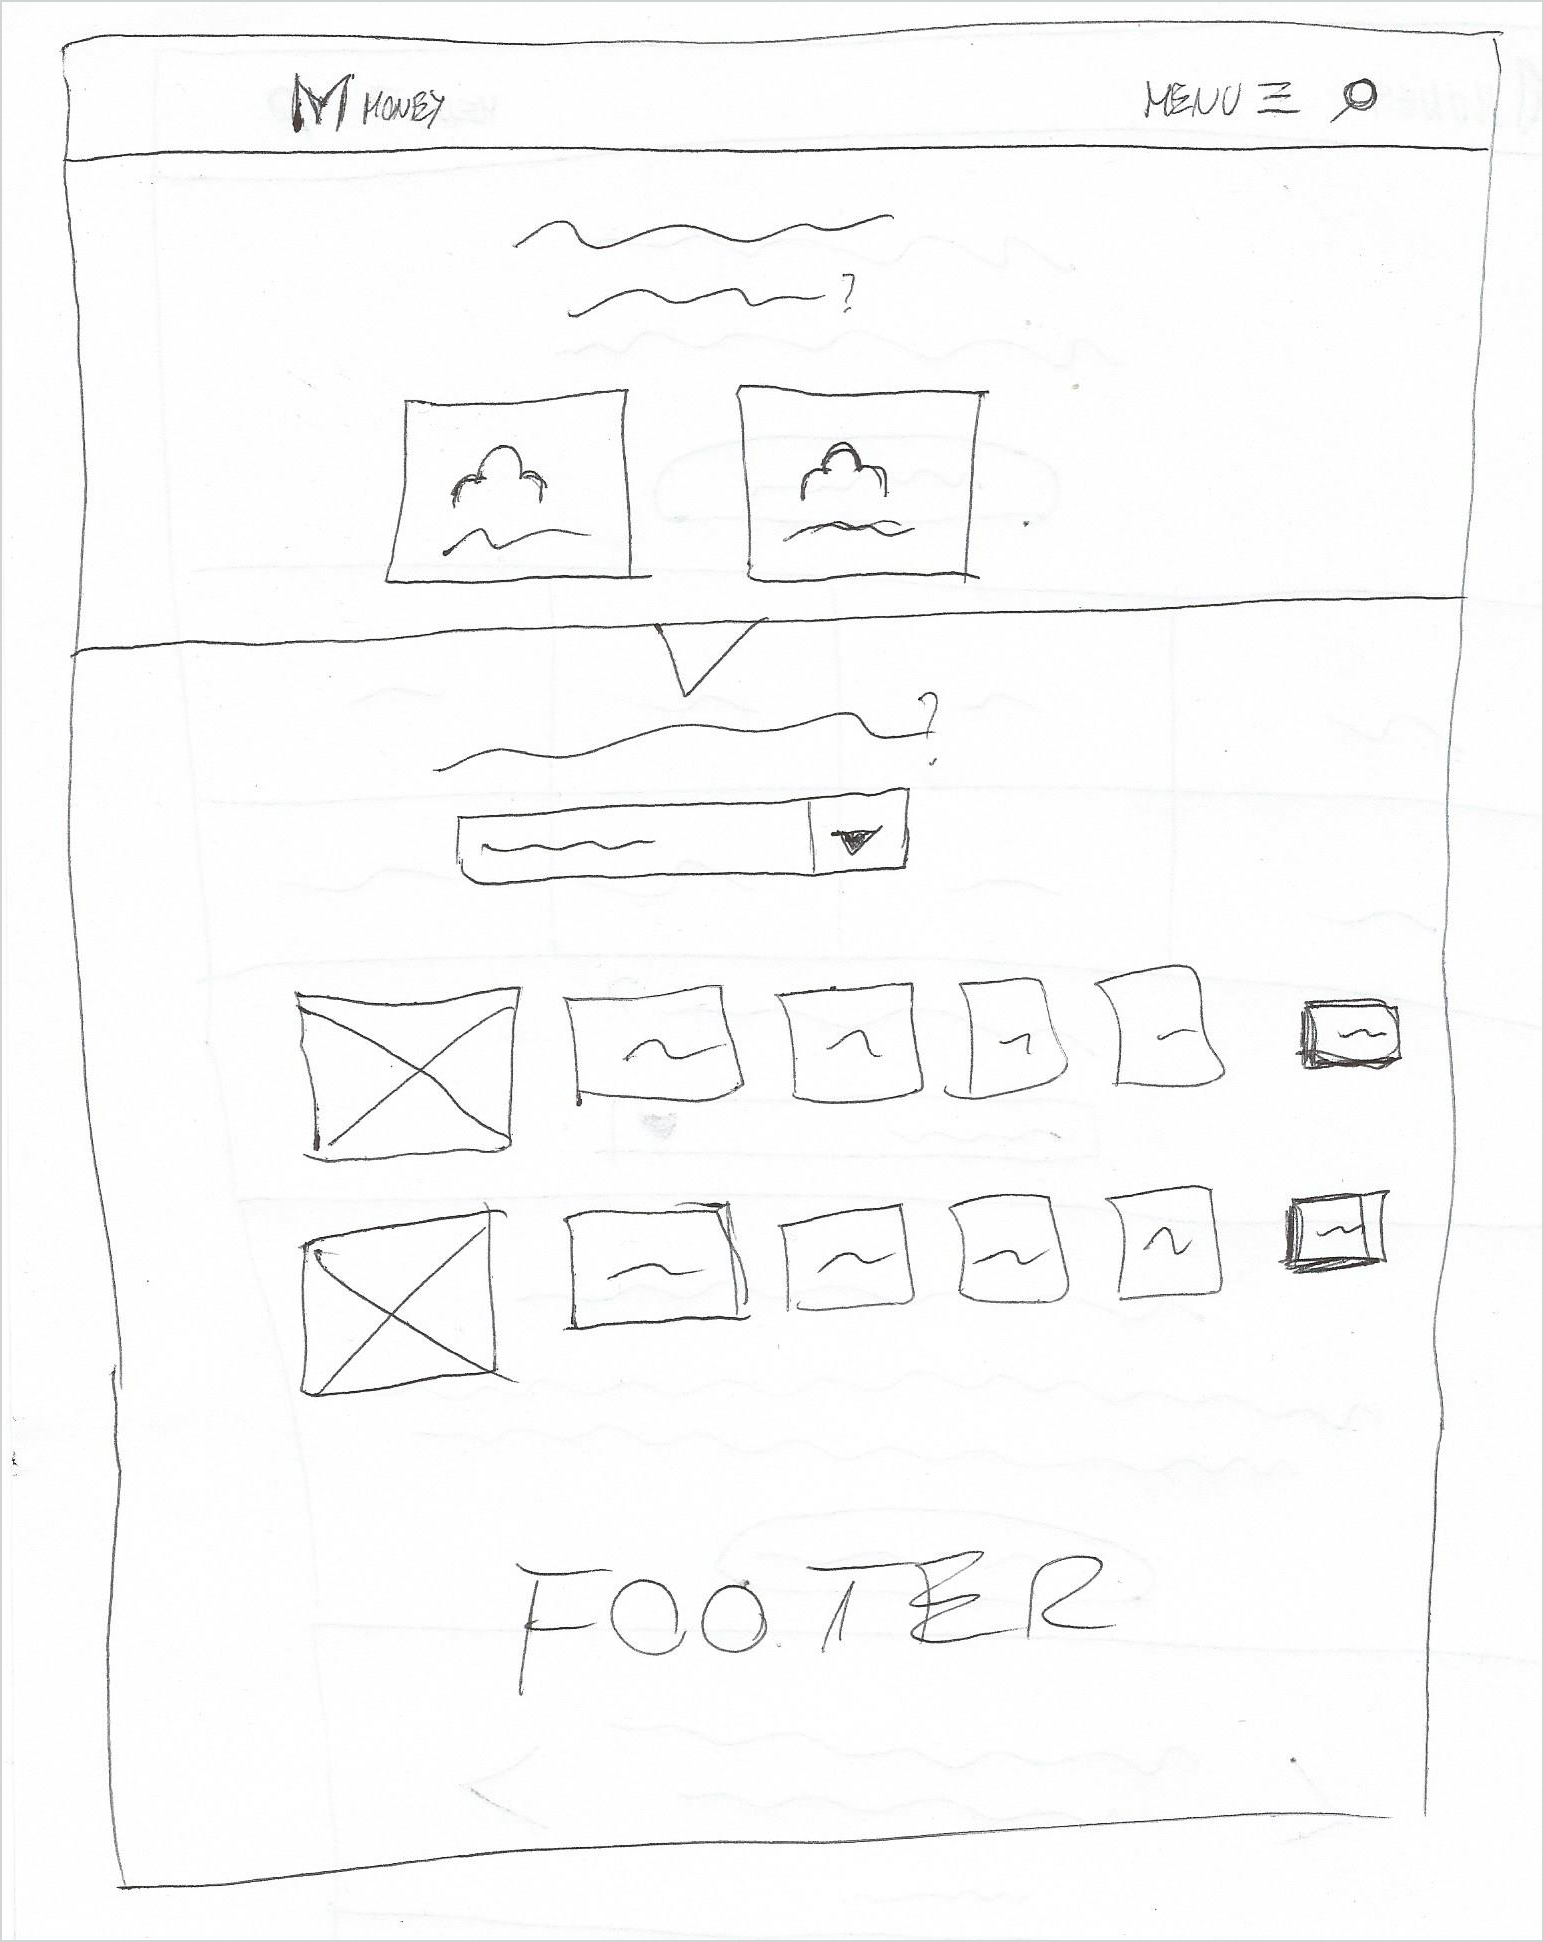 M MONEY
MENU
?
?
FOOTER